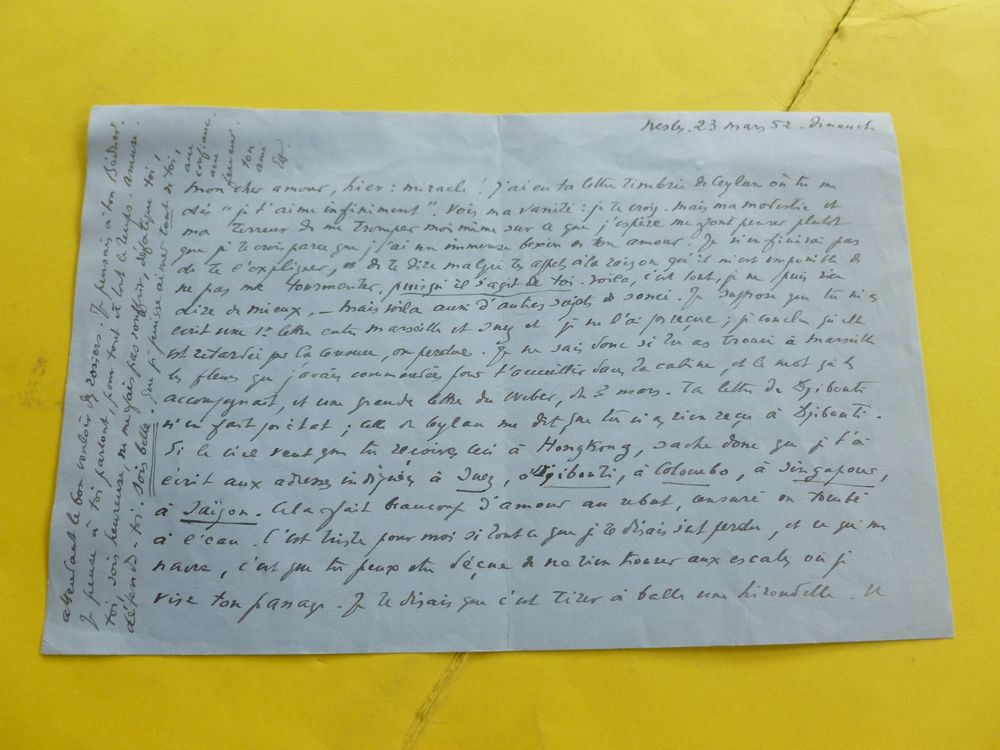 Nesles. 23 mars 52. Dimanche
mon cher amour, hier : miracle ! J'ai eu ta lettre timbrée de Ceylan où tu me
dis "je t'aime infiniment". Vois ma vanité : je te crois. mais ma modestie et
ma terreur de me tromper moi même sur ce que j'espère me font penser plutôt
que je te crois parce que j'ai un immense besoin de ton amour. Je n'en finirai pas
de te l'expliquer, et de te dire malgré tes appels à la raison qu'il m'est impossible de
ne pas me tourmenter, puisqu'il s'agit de toi. voilà, c'est tout, je ne puis rien
dire de mieux, – mais voilà aussi d'autres sujets de souci. Je suppose que tu m'as
écrit une 1e lettre entre Marseille et Suez et je ne l'ai pas reçue ; je conclus qu'elle
est retardée par la censure, ou perdue. Je ne sais donc si tu as trouvé à Marseille
les fleurs que j'avais commandées pour t'accueillir dans la cabine, et le mot qui les
accompagnait, et une grande lettre du Weber, du 2 mars. Ta lettre de Djibouti
n'en fait pas état ; celle de Ceylan me dit que tu n'as rien reçu à Djibouti.
Si le ciel veut que tu reçoives ceci à HongKong, sache donc que je t'ai
écrit aux adresses indiquées à Suez, à Djibouti, à Colombo, à Singapour,
à Saïgon. Cela fait beaucoup d'amour au rebut, censuré ou tombé
à l'eau. C'est triste pour moi si tout ce que je te disais s'est perdu, et ce qui me
navre, c'est que tu peux être déçue de ne rien trouver aux escales où je
vise ton passage. Je te disais que c'est tirer à balle une hirondelle.
attendant le bon vouloir des rosiers. Je pensais à ton
Je pense à toi partout, pour tout et tout le temps. amuse-
toi, sois heureuse, ne me fais pas souffrir, défatigue toi,
détends-toi. sois belle. Que je puisse aimer tout de toi,
avec
confiance,
avec
ferveur.
ton
ami